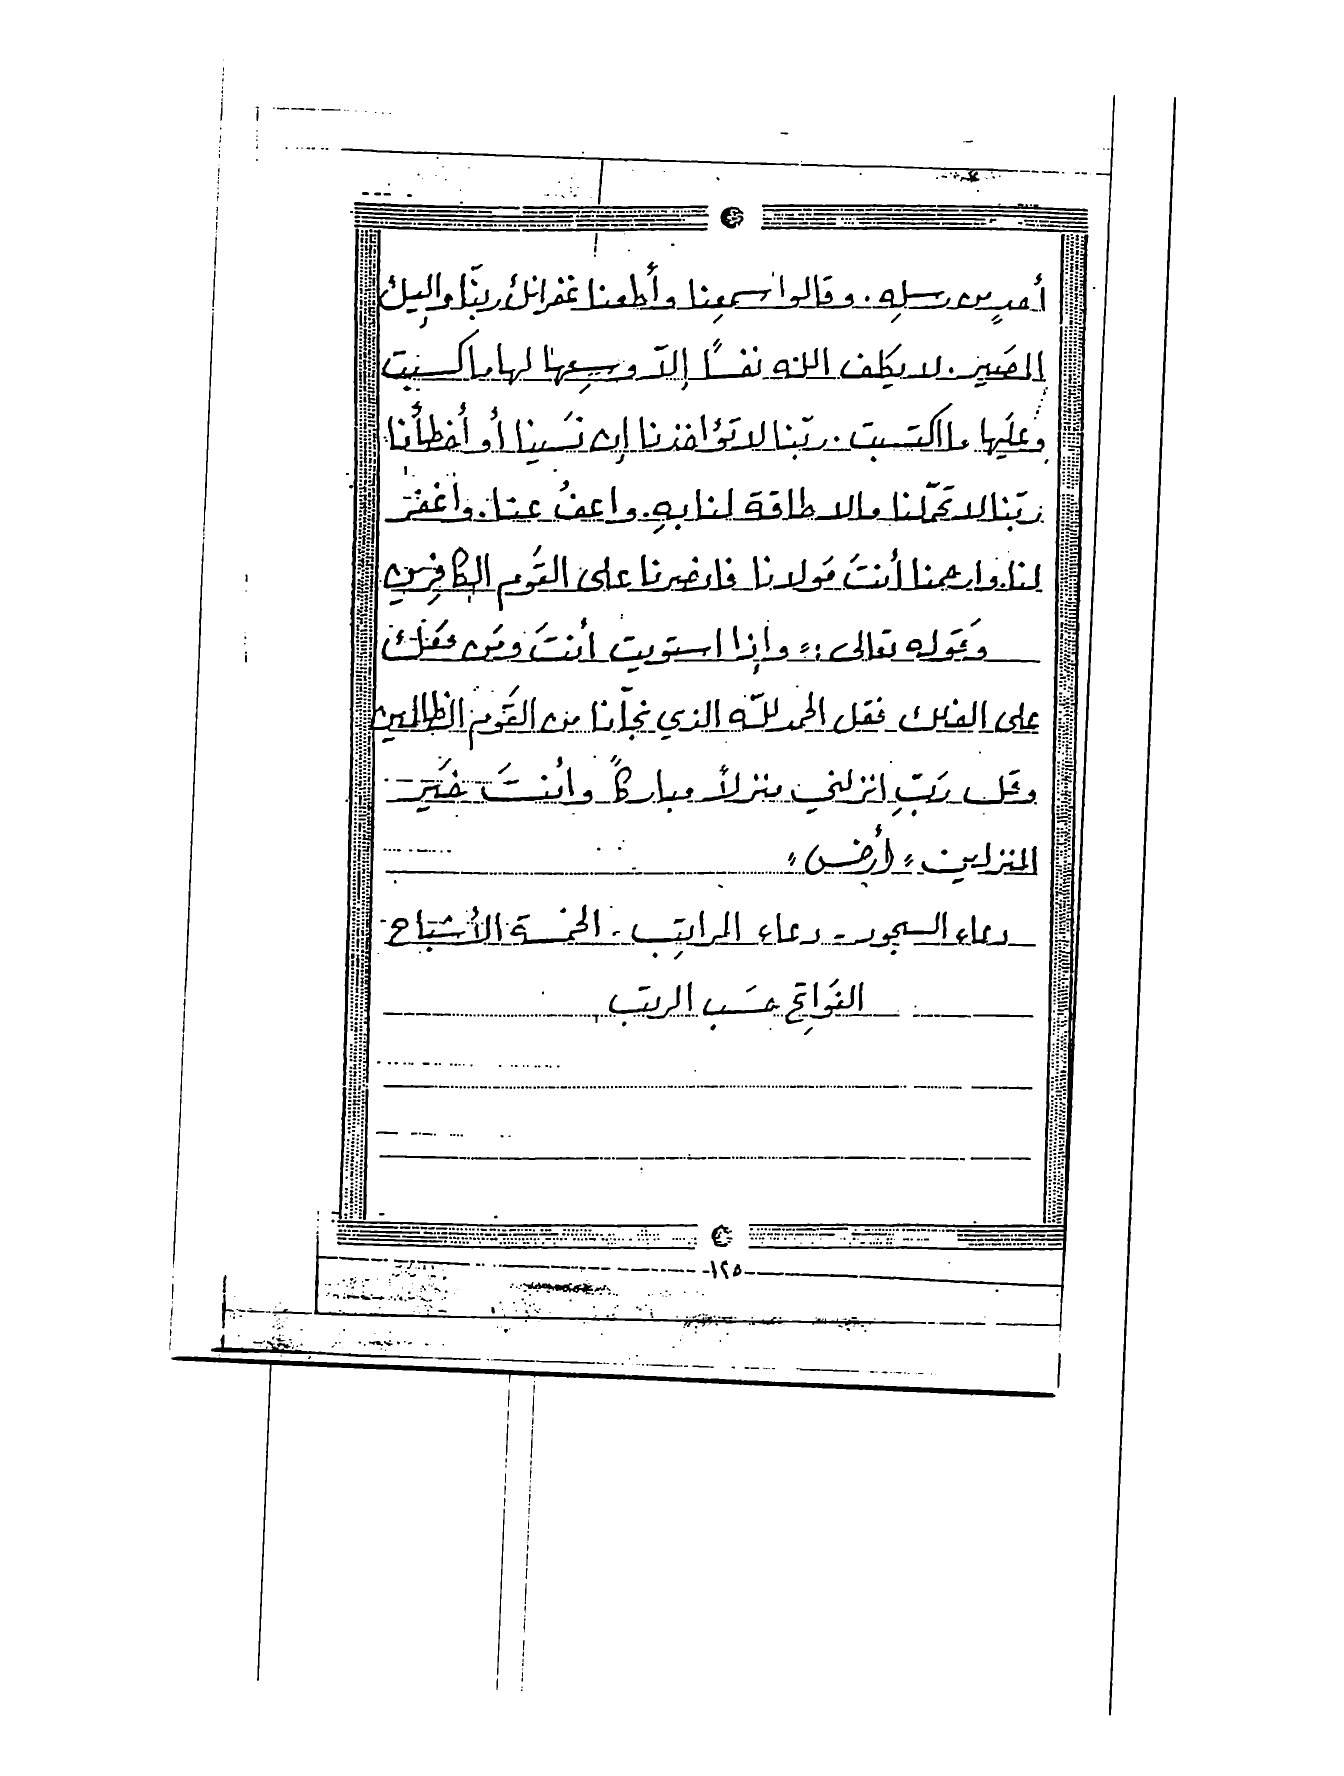 أحدٍ من رسلِه. وقالوا سمِعنا وأطعنا غفرانك ربّنا وإليك
المصَير. لا يكلف اللّه نفسًا إلّا وسعِها لها ما كسبت
وعلَيها ما اكتسبت. ربّنا لا تؤاخذنا إن نسَينا أو أخطأنا
ربّنا لا تحَمّلنا ما لا طاقة لنا بهِ. واعفُ عنا. واغفر
لنا. وارحمنا أنتَ مَولانا فانصرنا على القَوم الكافِرين
وبقَوله تعالى: " وإذا استويت أنتَ ومَن معَك
على الفلك فقل الحمد للّه الذي نجّانا من القَوم الظالمين
وقل ربّ انزلني منزلاً مباركاً وأنتَ خَير
المنزلين " (أرض) "
دعاء السجود - دعاء المراتِب - الخمسة الأشباح
الفَواتِح حسَب الرتب
-١٢٥-